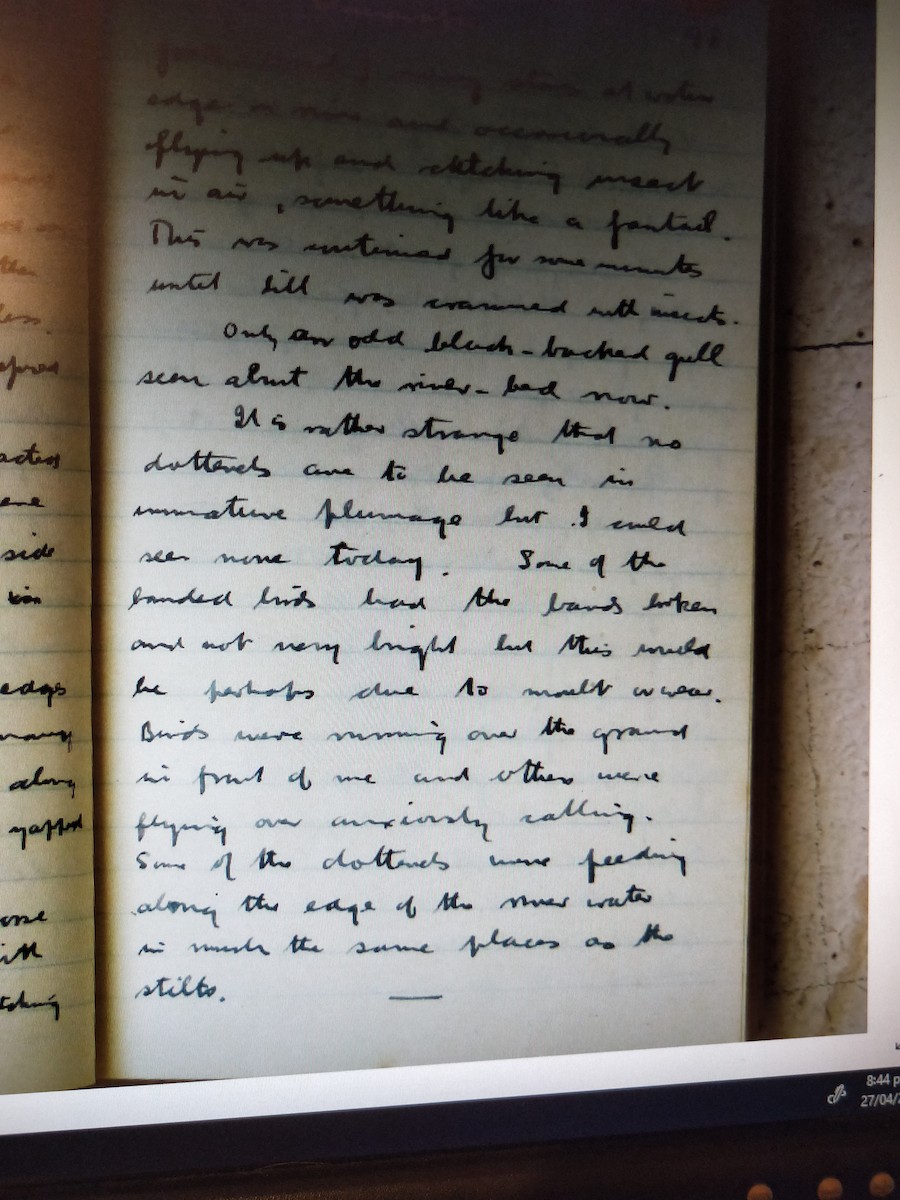 at water
edge or river and occasionally
flying up and catching insect
in air, something like a fantail.
This was continued for some minutes
until bill was crammed with insects.
Only an odd black-backed gull
seen about the river-bed now.
It is rather strange that no
dotterels are to be seen in
immature plumage but I could
see none today. Some of the
banded birds had the bands broken
and not very bright but this would
be perhaps due to moult or wear.
Birds were running over the ground
in front of me and others were
flying over anxiously calling.
Some of the dotterels were feeding
along the edge of the river water
in much the same places as the
stilts.
side
edges
many
along
yapped
8:44 p
27/04/2